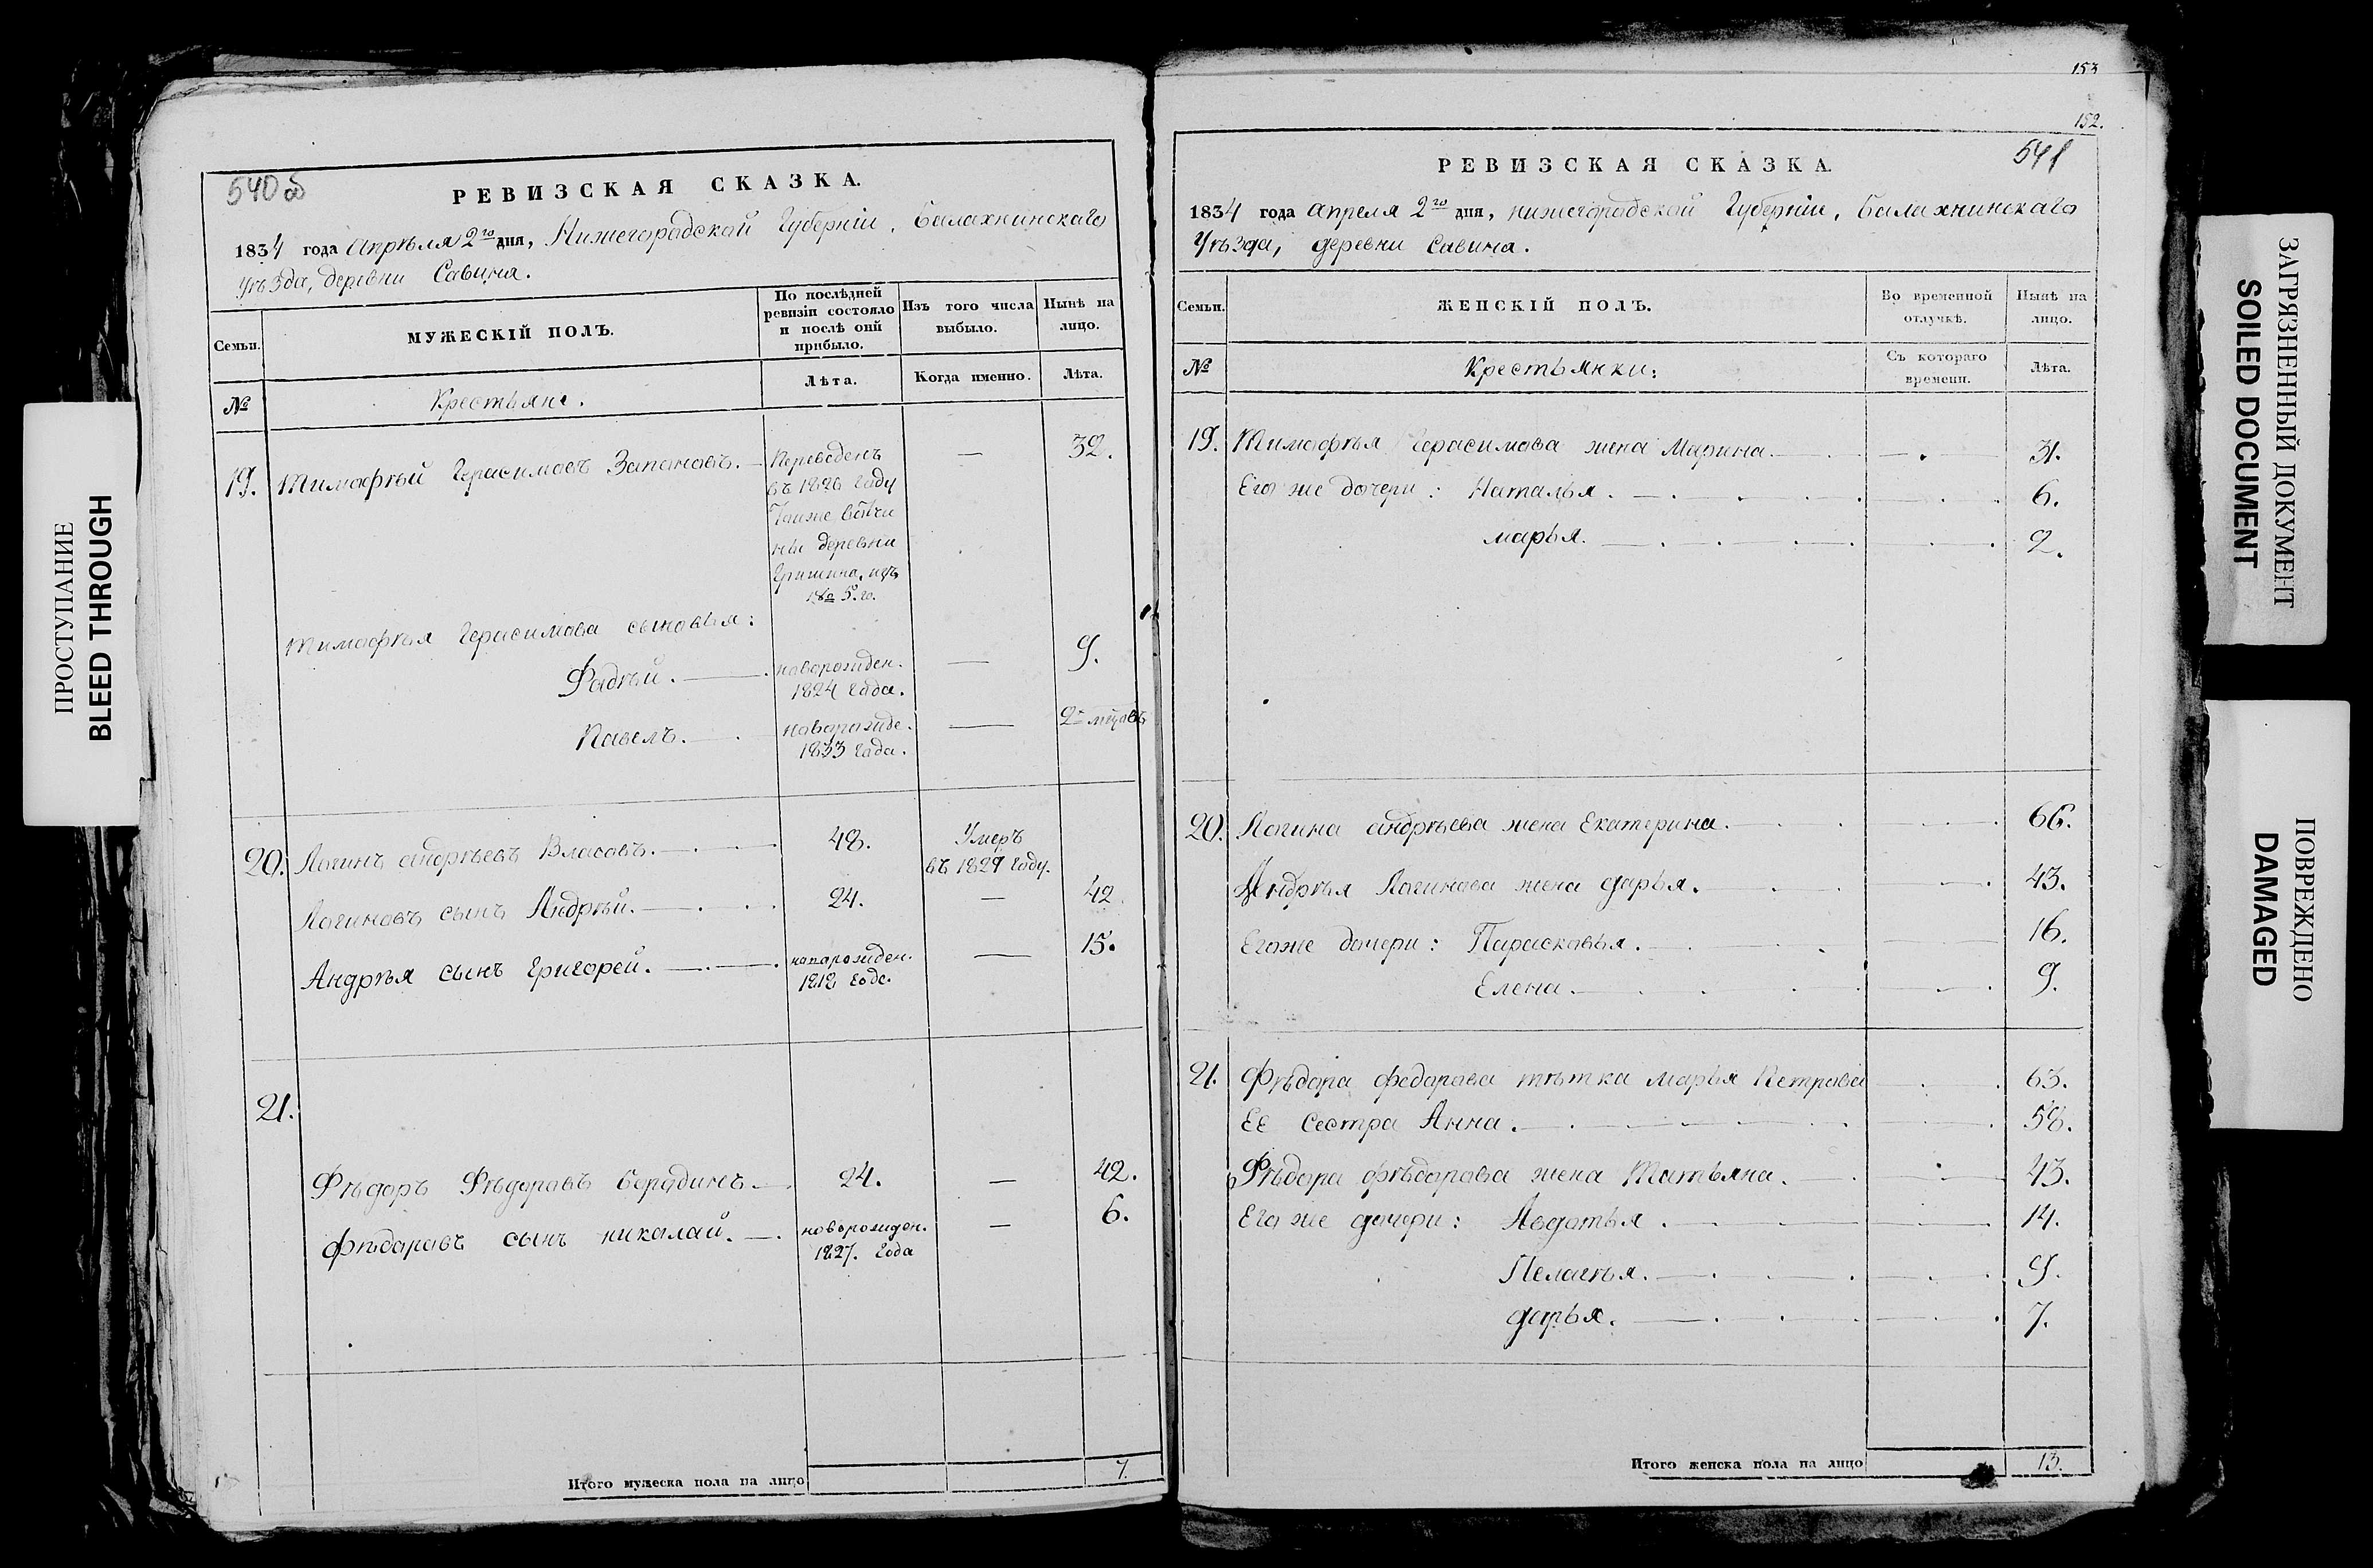 ПРОСТУПАНИЕ
BLEED THROUGH
540 об
РЕВИЗСКАЯ СКАЗКА.
1834 года Апрѣля 2го дня, Нижегородской Губерніи, Балахнинскаго
Уѣзда, деревни Савина.
Семьи.
МУЖЕСКІЙ ПОЛЪ.
По послѣдней ревизіи состояло и послѣ оній прибыло.
Изъ того числа выбыло.
Нынѣ на лицо.
№
Крестьяне.
Лѣта.
Когда именно.
Лѣта.
19. Тимофѣй Герасимовъ Запановъ. Переведенъ — 32.
въ 1826 году
деревни
Гришина, изъ
№ 5.го.
Тимофѣя Герасимова сыновья:
Фадѣй. новорожден. — 9.
1824 года.
Павелъ. новорожде. — 2 мцовъ
1833 года.
20. Логинъ Андрѣевъ Власовъ. 48. Умеръ
въ 1829 году.
Логиновъ сынъ Андрѣй. 24. — 42.
Андрѣя сынъ Григорей. — 15.
21.
Фѣдоръ Фѣдоровъ 24. — 42.
Фѣдоровъ сынъ николай. новорожден. — 6.
1827. Года
Итого мужеска пола на лицо 7.
153
152.
541
РЕВИЗСКАЯ СКАЗКА.
1834 года апреля 2го дня, нижегородской Губерніи, Балахнинскаго
Уѣзда, деревни Савина.
Семьи.
ЖЕНСКІЙ ПОЛЪ.
Во временной отлучкѣ.
Нынѣ на лицо.
№
Крестьянки:
Съ котораго времени.
Лѣта.
19. Тимофѣя Герасимова жена Марина. 31.
Его же дочери: Наталья. 6.
марья. 2.
20. Логина андрѣева жена Екатерина. 66.
Андрѣя Логинова жена дарья. 43.
Егоже дочери: Парасковья. 16.
Елена. 9.
21. Фѣдора федорова тѣтка марья Петрова 63.
Ее Сестра Анна. 58.
Фѣдора фѣдорова жена Татьяна. 43.
Его же дочери: Авдотья. 14.
Пелагѣя. 9.
дарья. 7.
Итого женска пола на лицо 13.
ЗАГРЯЗНЕННЫЙ ДОКУМЕНТ
SOILED DOCUMENT
ПОВРЕЖДЕНО
DAMAGED